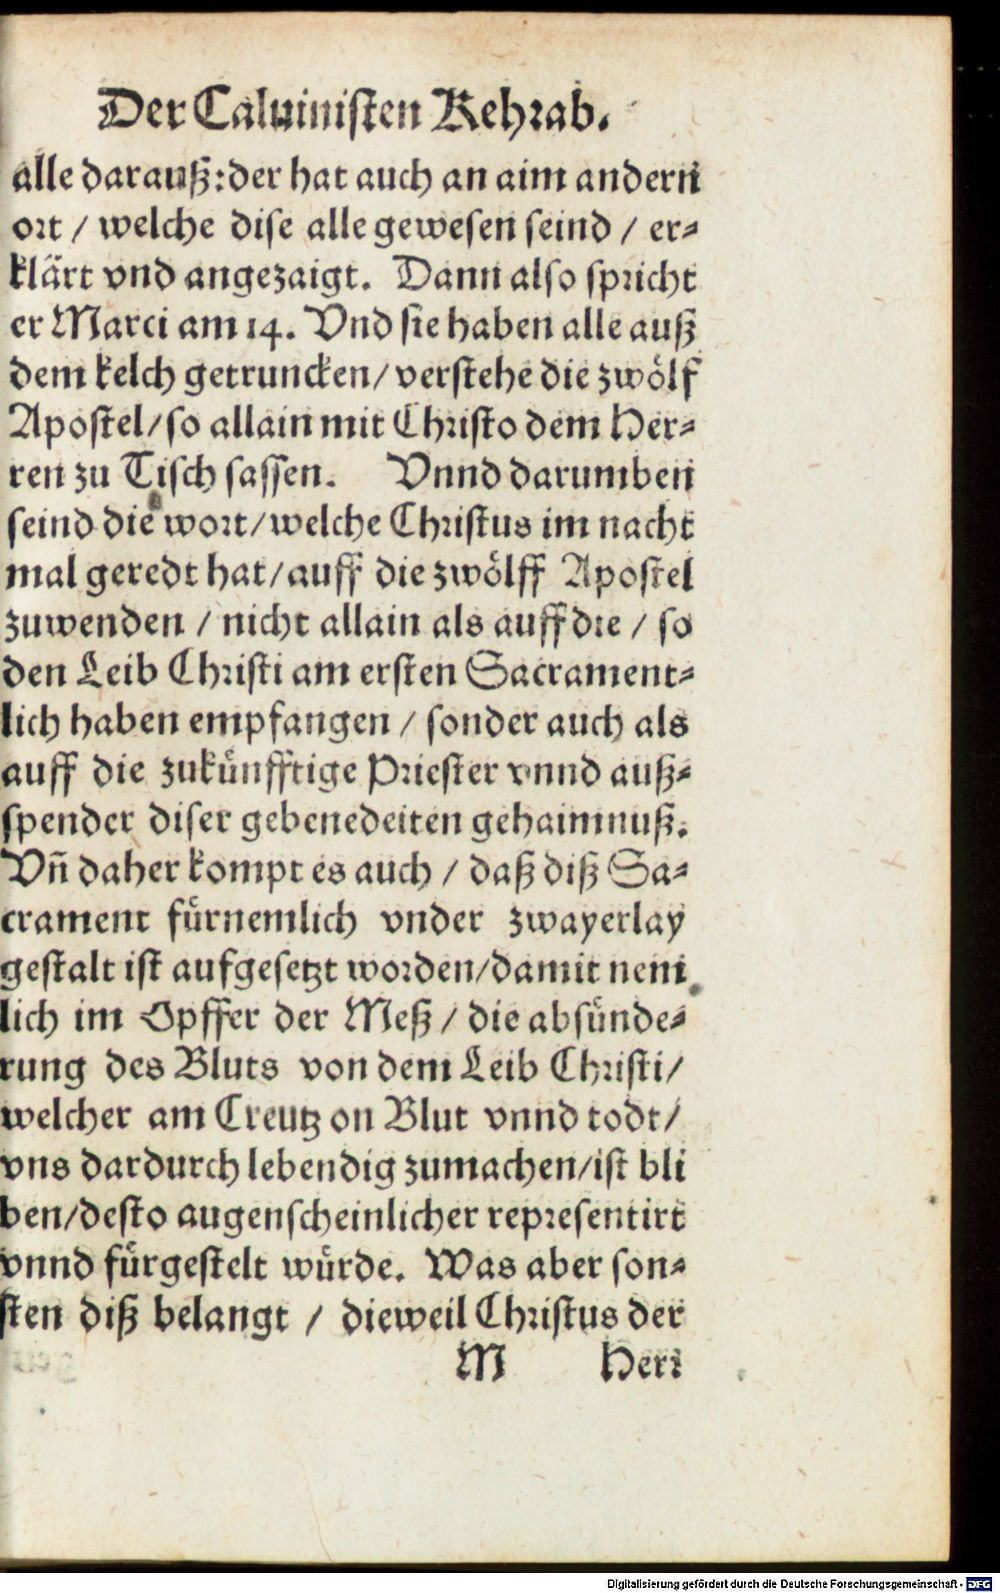 Der Caluinisten Kehrab.
alle darauß: der hat auch an aim andern
ort / welche dise alle gewesen seind / er⸗
klärt vnd angezaigt. Dann also spricht
er Marci am 14. Vnd sie haben alle auß
dem kelch getruncken/ verstehe die zwölf
Apostel/ so allain mit Christo dem Her⸗
ren zu Tisch sassen. Vnnd darumben
seind die wort/ welche Christus im nacht
mal geredt hat/ auff die zwölff Apostel
zuwenden / nicht allain als auff die / so
den Leib Christi am ersten Sacrament⸗
lich haben empfangen / sonder auch als
auff die zukünfftige Priester vnnd auß⸗
spender diser gebenedeiten gehaimnuß.
Vñ daher kompt es auch / daß diß Sa⸗
crament fürnemlich vnder zwayerlay
gestalt ist aufgesetzt worden/ damit nem
lich im Opffer der Meß / die absünde⸗
rung des Bluts von dem Leib Christi/
welcher am Creutz on Blut vnnd todt/
vns dardurch lebendig zumachen/ ist bli
ben/ desto augenscheinlicher representirt
vnnd fürgestelt würde. Was aber son⸗
sten diß belangt / dieweil Christus der
M Herr
Digitalisierung gefördert durch die Deutsche Forschungsgemeinschaft - DFG